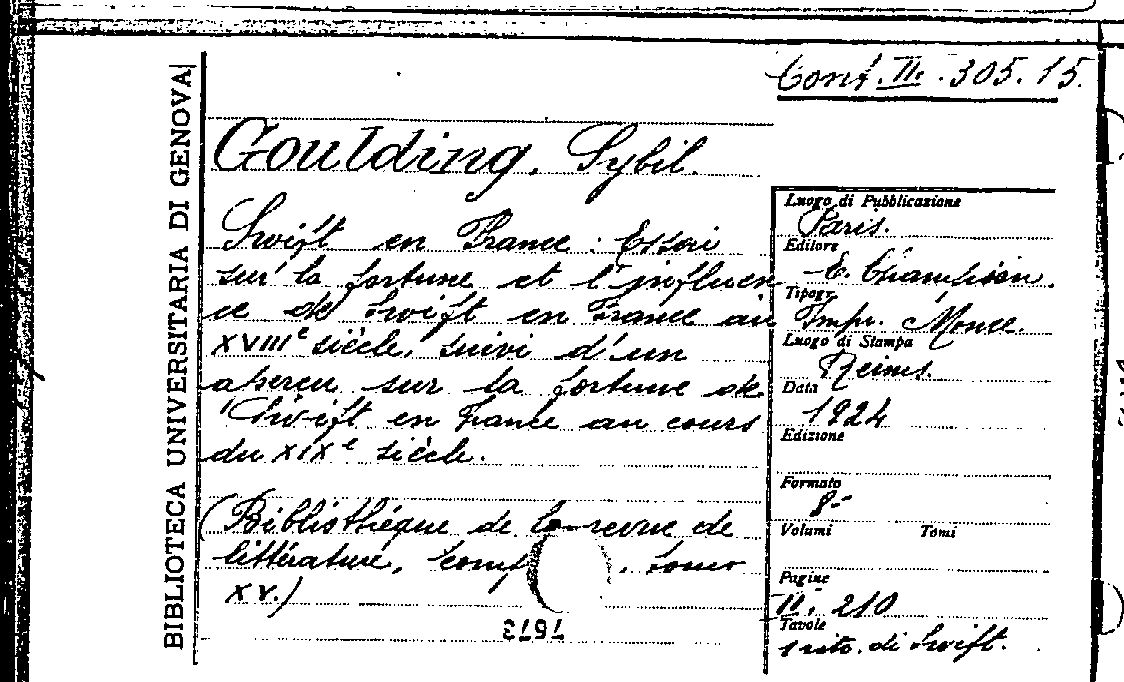 Conf. II. 305.15.
BIBLIOTECA UNIVERSITARIA DI GENOVA
Goulding, Sybil.
Swift en France : Essai
sur la fortune et l'influen
ce de Swift en France au
XVIIIe siècle, suivi d'un
aperçu sur la fortune de
Swift en France au cours
du XIXe siècle.
(Bibliothèque de la revue de
littérature, comp . tome
XV.)
7673
Luogo di Pubblicazione
Paris.
Editore
E. Champion.
Tipogr.
Impr. Monce.
Luogo di Stampa
Reims.
Data
1924
Edizione
Formato
8-
Volumi Tomi
Pagine
II. 210
Tavole
1 ritr. di Swift.